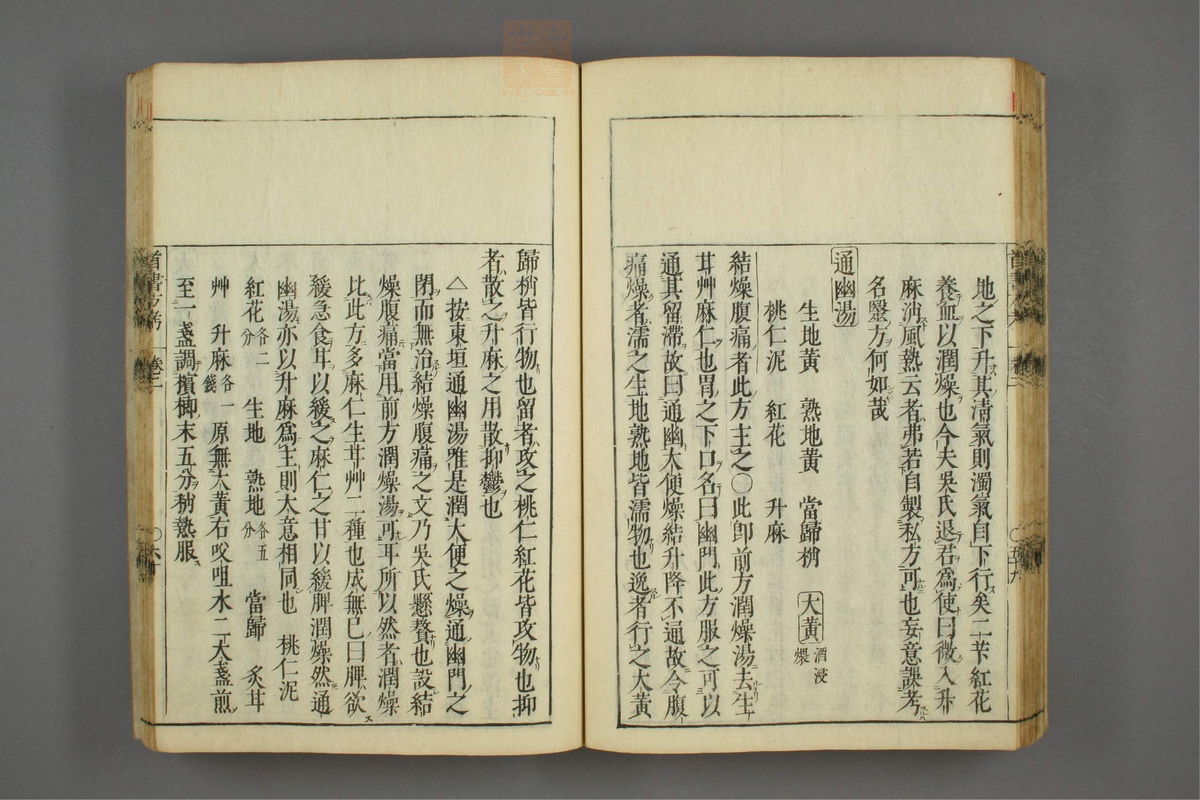 地之下升其清氣則濁氣自下行矣二芐紅花
養血以潤燥也今夫吳氏退君爲使曰微入升
麻消風熱云者弗若自製私方可也妄意誤考
名醫方何如哉
通幽湯
生地黃 熟地黃 當歸梢 大黃酒浸煨
桃仁泥 紅花 升麻
結燥腹痛者此方主之〇此卽前方潤燥湯去生
甘艸麻仁也胃之下口名曰幽門此方服之可以
通其留滯故曰通幽大便燥結升降不通故令腹
痛燥者濡之生地熟地皆濡物也逸者行之大黃
歸梢皆行物也留者攻之桃仁紅花皆攻物也抑
者散之升麻之用散抑鬱也
△按東垣通幽湯雖是潤大便之燥通幽門之
閉而無治結燥腹痛之文乃吳氏懸贅也設結
燥腹痛當用前方潤燥湯可耳所以然者潤燥
比此方多麻仁生甘艸二種也成無已曰脾欲
緩急食甘以緩之麻仁之甘以緩脾潤燥然通
幽湯亦以升麻爲主則大意相同也 桃仁泥
紅花各二分 生地 熟地各五分 當歸 炙甘
艸 升麻各一錢 原無大黃右㕮咀水二大盞煎
至一盞調檳榔末五分稍熱服